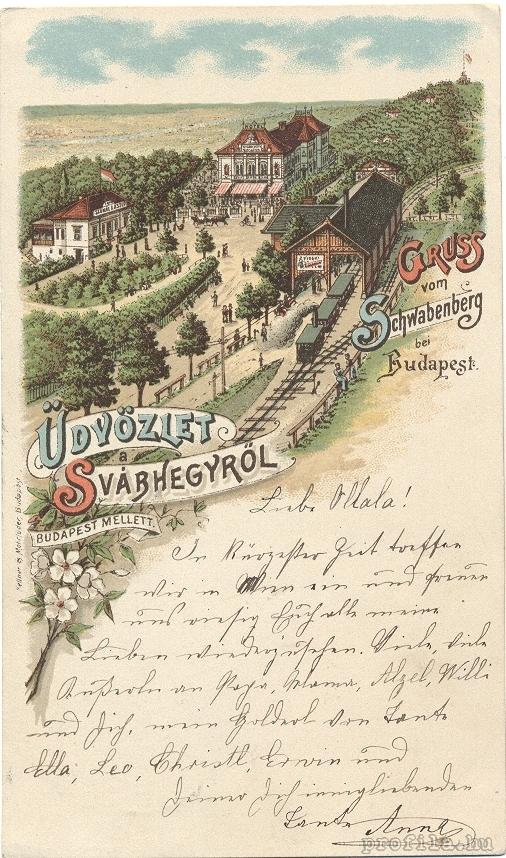 GRUSS
vom
Schwabenberg
bei
Budapest.
ÜDVÖZLET
a
SVÁBHEGYRŐL
BUDAPEST MELLETT.
Liebe Ollala!
In kürzester Zeit treffen
wir in Wien ein und freuen
uns riesig Euch alle meine
Lieben wiederzusehen. Viele, viele
an Papa, Mama, Willi
und Dich, mein Golderl von Tante
Ella, Leo, Christl, Erwin und
Deiner Dich innigliebenden
Tante
profila.hu